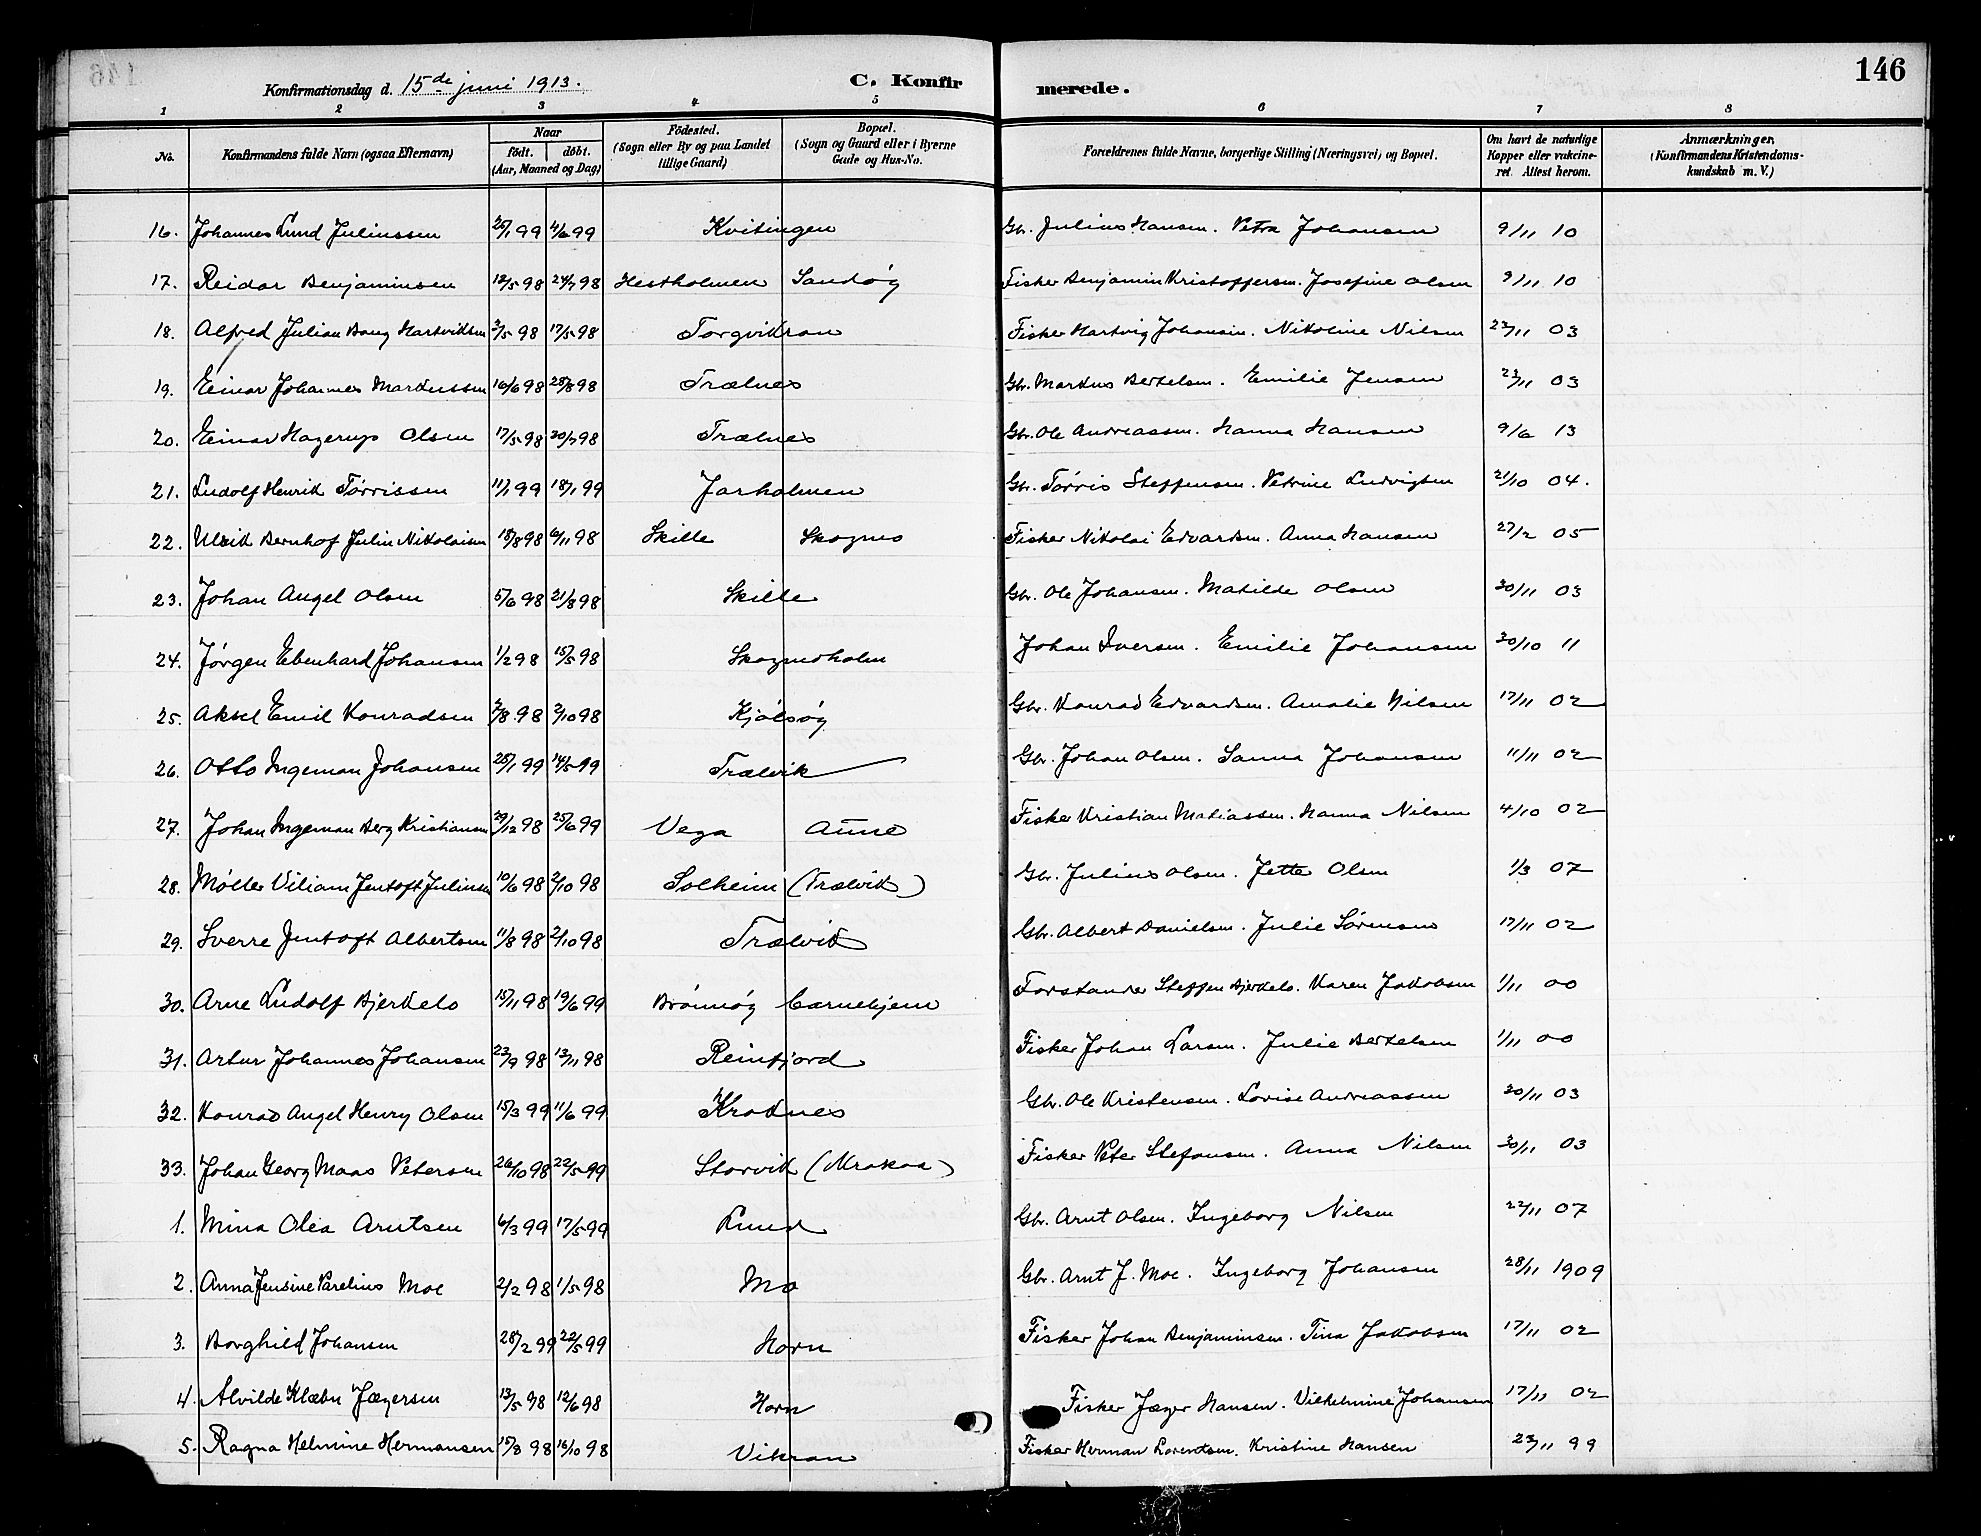 146
Konfirmationsdag d. 15de juni 1913.
C. Konfir merede.
1 2 3 4 5 6 7 8
No. Konfirmandens fulde Navn (ogsaa Efternavn) Naar født. døbt. (Aar, Maaned og Dag) Fødested. (Sogn eller By og paa Landet tillige Gaard) Bopæl. (Sogn og Gaard eller i Byerne Gade og Hus-No. Forældrenes fulde Navne, borgerlige Stilling (Næringsvei) og Bopæl. Om havt de naturlige Kopper eller vakcineret. Attest herom. Anmærkninger. (Konfirmandens Kristendomskundskab m. V.)
16. Johannes Lund Juliussen 99 4/6 99 Kvitingen Gbr. Julius Hansen. Petra Johansen 9/11 10
17. Reidar Benjaminsen 12/5 98 24/7 98 Hestholmen Sandøy Fisker Benjamin Kristoffersen. Josefine Olsen 9/11 10
18. Alfred Julian Bang Hartviksen 3/5 98 17/5 98 Torgvikran Fisker Hartvig Johansen. Nikoline Nilsen 23/11 03
19. Einar Johannes Markussen 16/6 98 28/8 98 Trælnes Gbr. Markus Bertelsen. Emilie Jensen 23/11 03
20. Einar Hagerup Olsen 17/5 98 20/7 98 Trælnes Gbr. Ole Andreassen. Hanna Hansen 9/6 13
21. Ludolf Henrik Tørrissen 11/1 99 18/1 99 Jarholmen Gbr. Tørris Steffensen. Petrine Ludvigsen 21/10 04.
22. Ulrik Bernhof Julin Nikolaisen 18/8 98 6/11 98 Skille Skogmo Fisker Nikolai Edvardsen. Anna Hansen 27/2 05
23. Johan Angel Olsen 5/6 98 21/8 98 Skille Gbr. Ole Johansen. Matilde Olsen 30/11 03
24. Jørgen Ebenhard Johansen 1/2 98 15/5 98 Skogmoholm Johan Iversen. Emilie Johansen 30/10 11
25. Aksel Emil Konradsen 2/8 98 2/10 98 Kjølsøy Gbr. Konrad Edvardsen. Amalie Nilsen 17/11 02
26. Otto Ingeman Johansen 28/1 99 14/5 99 Trælvik Gbr. Johan Olsen. Sanna Johansen 11/11 02
27. Johan Ingeman Berg Kristiansen 29/12 98 25/6 99 Vega Aune Fisker Kristian Matiassen. Hanna Nilsen 4/10 02
28. Møller Viliam Jentoft Juliussen 10/6 98 2/10 98 Solheim (Trælvik) Gbr. Julius Olsen. Jette Olsen 1/3 07
29. Sverre Jentoft Albertsen 11/8 98 2/10 98 Trælvik Gbr. Albert Danielsen. Julie Sørensen 17/11 02
30. Arne Ludolf Bjerkelo 15/11 98 19/6 99 Brønnøy barnehjem Forstander Steffen Bjerkelo. Karen Jakobsen 1/11 00
31. Artur Johannes Johansen 23/9 98 13/11 98 Reinfjord Fisker Johan Larsen. Julie Bertelsen 1/11 00
32. Konrad Angel Henry Olsen 15/3 99 11/6 99 Kroknes Gbr. Ole Kristensen. Lovise Andreassen 20/11 03
33. Johan Georg Maas Petersen 26/10 98 22/5 99 Storvik Fisker Peter Stefansen. Anna Nilsen 30/11 03
1. Mina Olea Arntsen 6/3 99 17/5 99 Lund Gbr. Arnt Olsen. Ingeborg Nilsen 22/11 07
2. Anna Jensine Parelius Moe 2/2 98 1/5 98 Mo Gbr. Arnt J. Moe. Ingeborg Johansen 28/11 1909
3. Borghild Johansen 28/2 99 22/5 99 Horn Fisker Johan Benjaminsen. Tina Jakobsen 17/11 02
4. Alvilde Klæbu Jægersen 13/5 98 12/6 98 Horn Fisker Jæger Hansen. Vilhelmine Johansen 17/11 02
5. Ragna Helmine Hermansen 15/8 98 16/10 98 Vikran Fisker Herman Lorentsen. Kristine Hansen 23/11 99